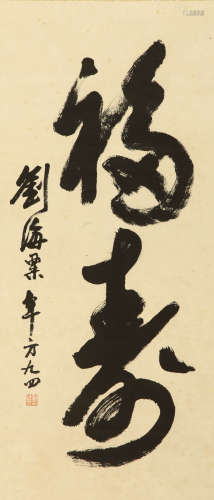 福寿
劉海粟年方九四